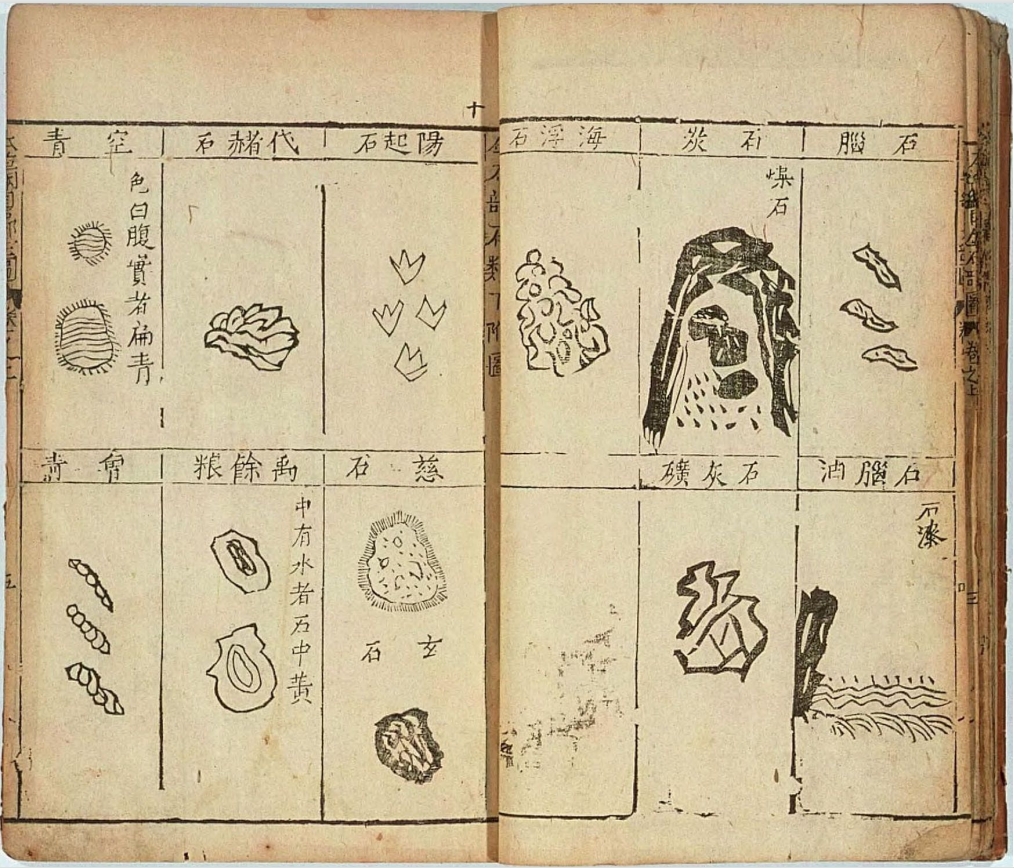 石腦
石炭
燥石
海浮石
石腦油
石漆
石灰礦
部石類下附圖
十
陽起石
代赭石
空青
色白腹實者扁青
慈石
玄石
禹餘粮
中有水者石中黃
曾青
五